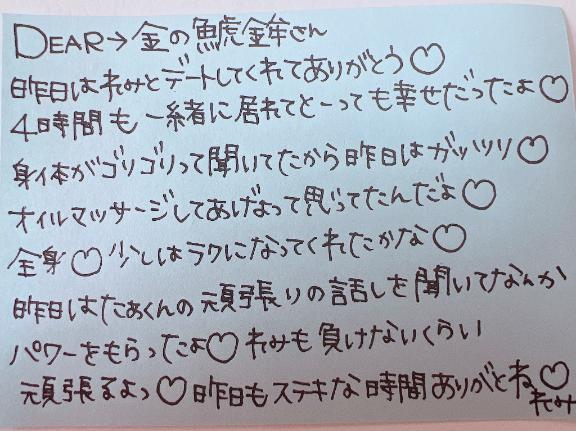 DEAR→金の鯱鉾さん
昨日はれみとデートしてくれてありがとう♡
4時間も一緒に居れてとーっても幸せだったよ♡
身体がゴリゴリって聞いてたから昨日はガッツリ♡
オイルマッサージしてあげよって思ってたんだよ♡
全身♡少しはラクになってくれたかな♡
昨日はたぁくんの頑張りの話しを聞いてなんか
パワーをもらったよ♡れみも負けないくらい
頑張るよっ♡昨日もステキな時間ありがとね♡
れみ